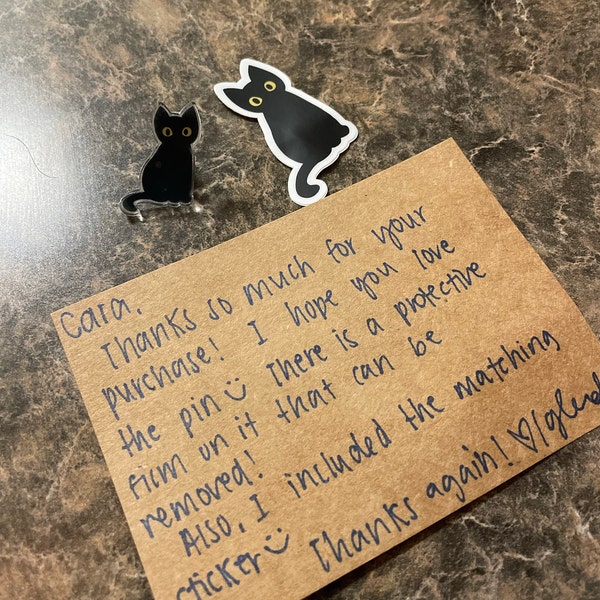 Cara,
Thanks so much for your
purchase! I hope you love
the pin☺ There is a protective
film on it that can be
removed!
Also, I included the matching
sticker☺ Thanks again! ♡/